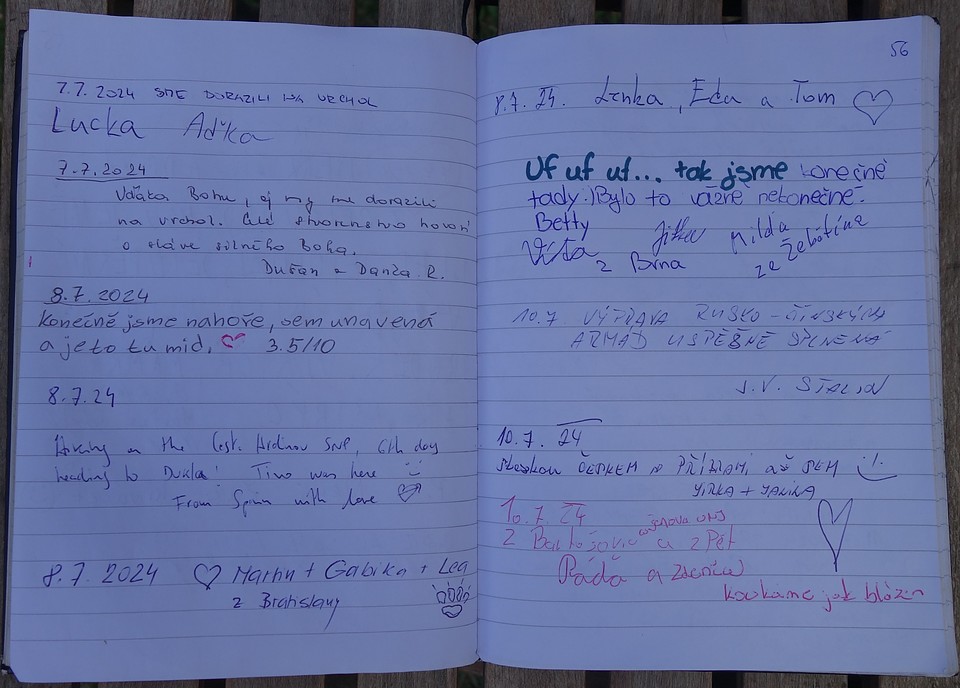 7.7.2024 SME DORAZILI NA VRCHOL
Lucka Aďka
7.7.2024
Vďaka Bohu, aj my sme dorazili
na vrchol. Celé stvorenstvo hovorí
o sláve silného Boha.
Dušan a Danka R.
8.7.2024
Konečně jsme nahoře, sem unavená
a je to tu mid. 3.5/10
8.7.24
Hiking on the Cest. Hrdinov SNP, 6th day
heading to Dukla! Tino was here
From Spain with love
8.7.2024 Martin + Gabika + Lea
z Bratislavy
56
8.7.24. Lenka, Eda a Tom
Uf uf uf... tak jsme konečně
tady :) Bylo to vážně nekonečné.
Betty
Víťa z Brna Jitka Milda
ze Želetína
10.7 VÝPRAVA RUSKO-ČÍNSKÝCH
ARMÁD ÚSPĚŠNĚ SPLNĚNÁ
J.V. STALIN
10.7.24
ČESKEM AŽ SEM
JIRKA + JANINA
10.7.24
z a z Pět
Páďa a Zdenča
koukáme jak blázen